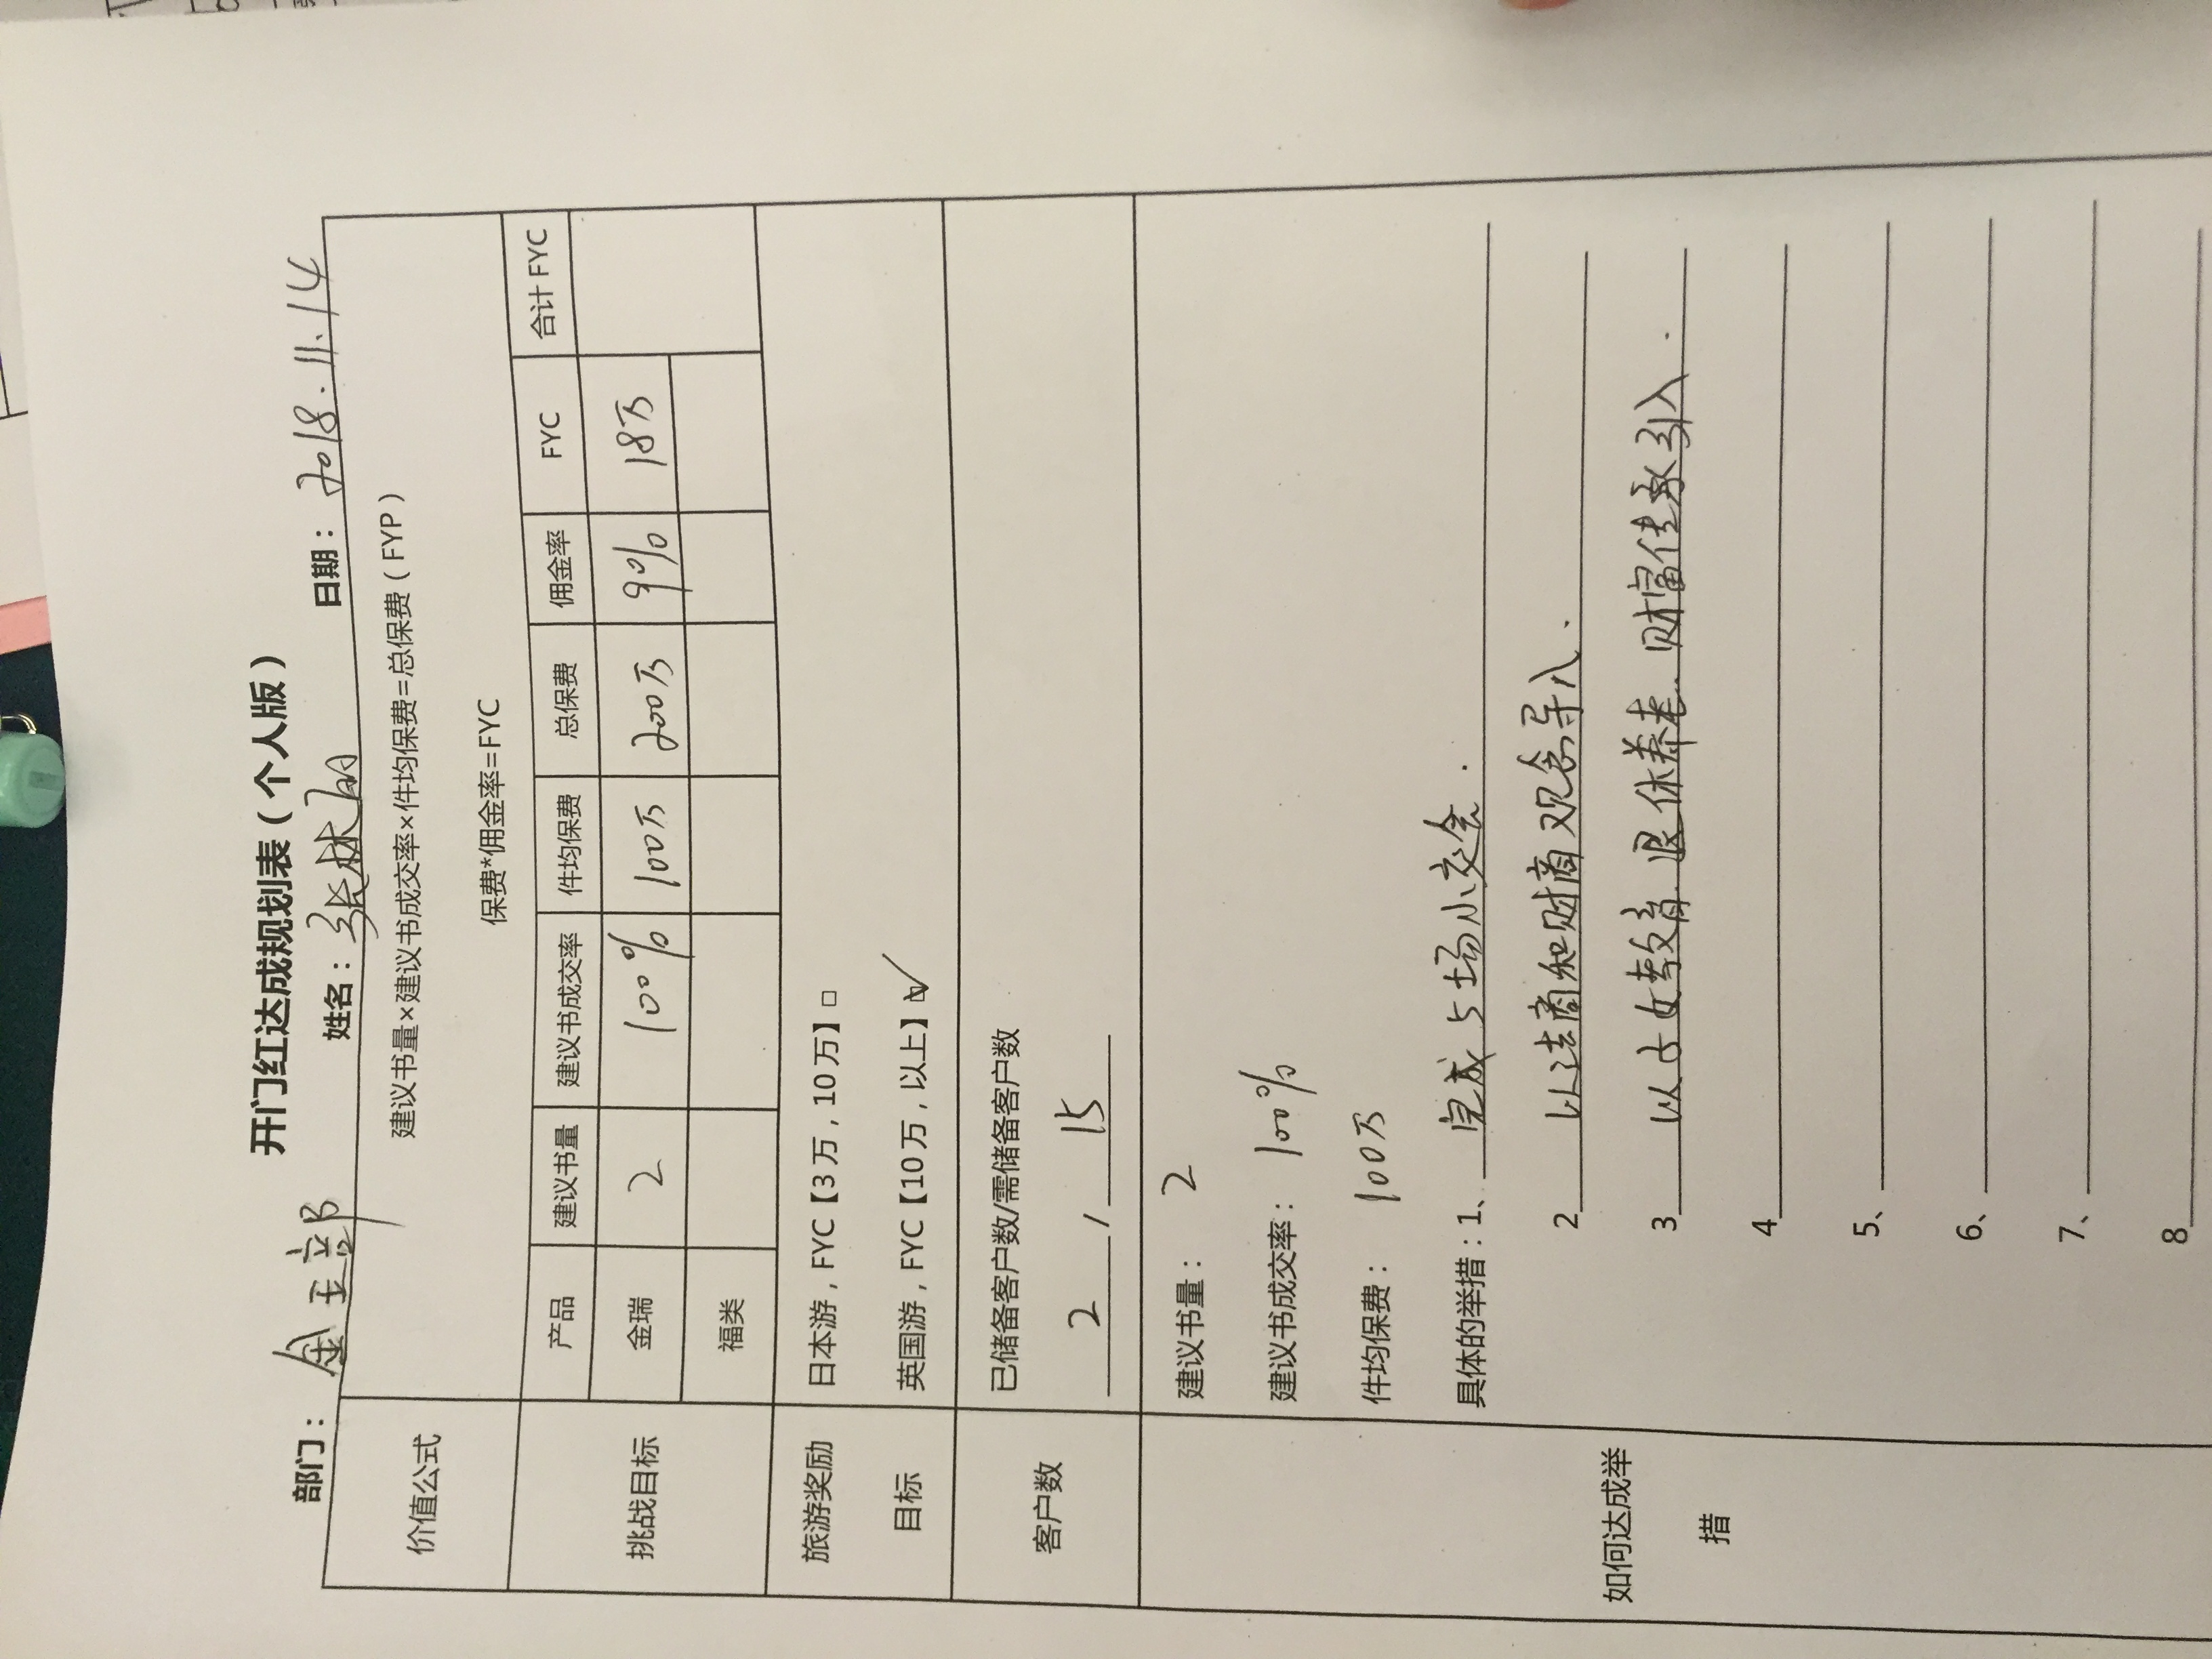 开门红达成规划表（个人版）
部门：金玉部 姓名：张林 日期：2018.11.14
价值公式
建议书量×建议书成交率×件均保费=总保费（FYP）
保费*佣金率=FYC
挑战目标
产品 建议书量 建议书成交率 件均保费 总保费 佣金率 FYC 合计FYC
金瑞 2 100% 100万 200万 9% 18万
福类
旅游奖励
目标
日本游，FYC【3万，10万】□
英国游，FYC【10万，以上】☑
客户数
已储备客户数/需储备客户数
2 / 15
如何达成举
措
建议书量： 2
建议书成交率： 100%
件均保费： 100万
具体的举措：1、完成5场小交会.
2 以法商和财商观念导入.
3 以子女教育.退休养老.财富传承引入.
4
5、
6、
7、
8